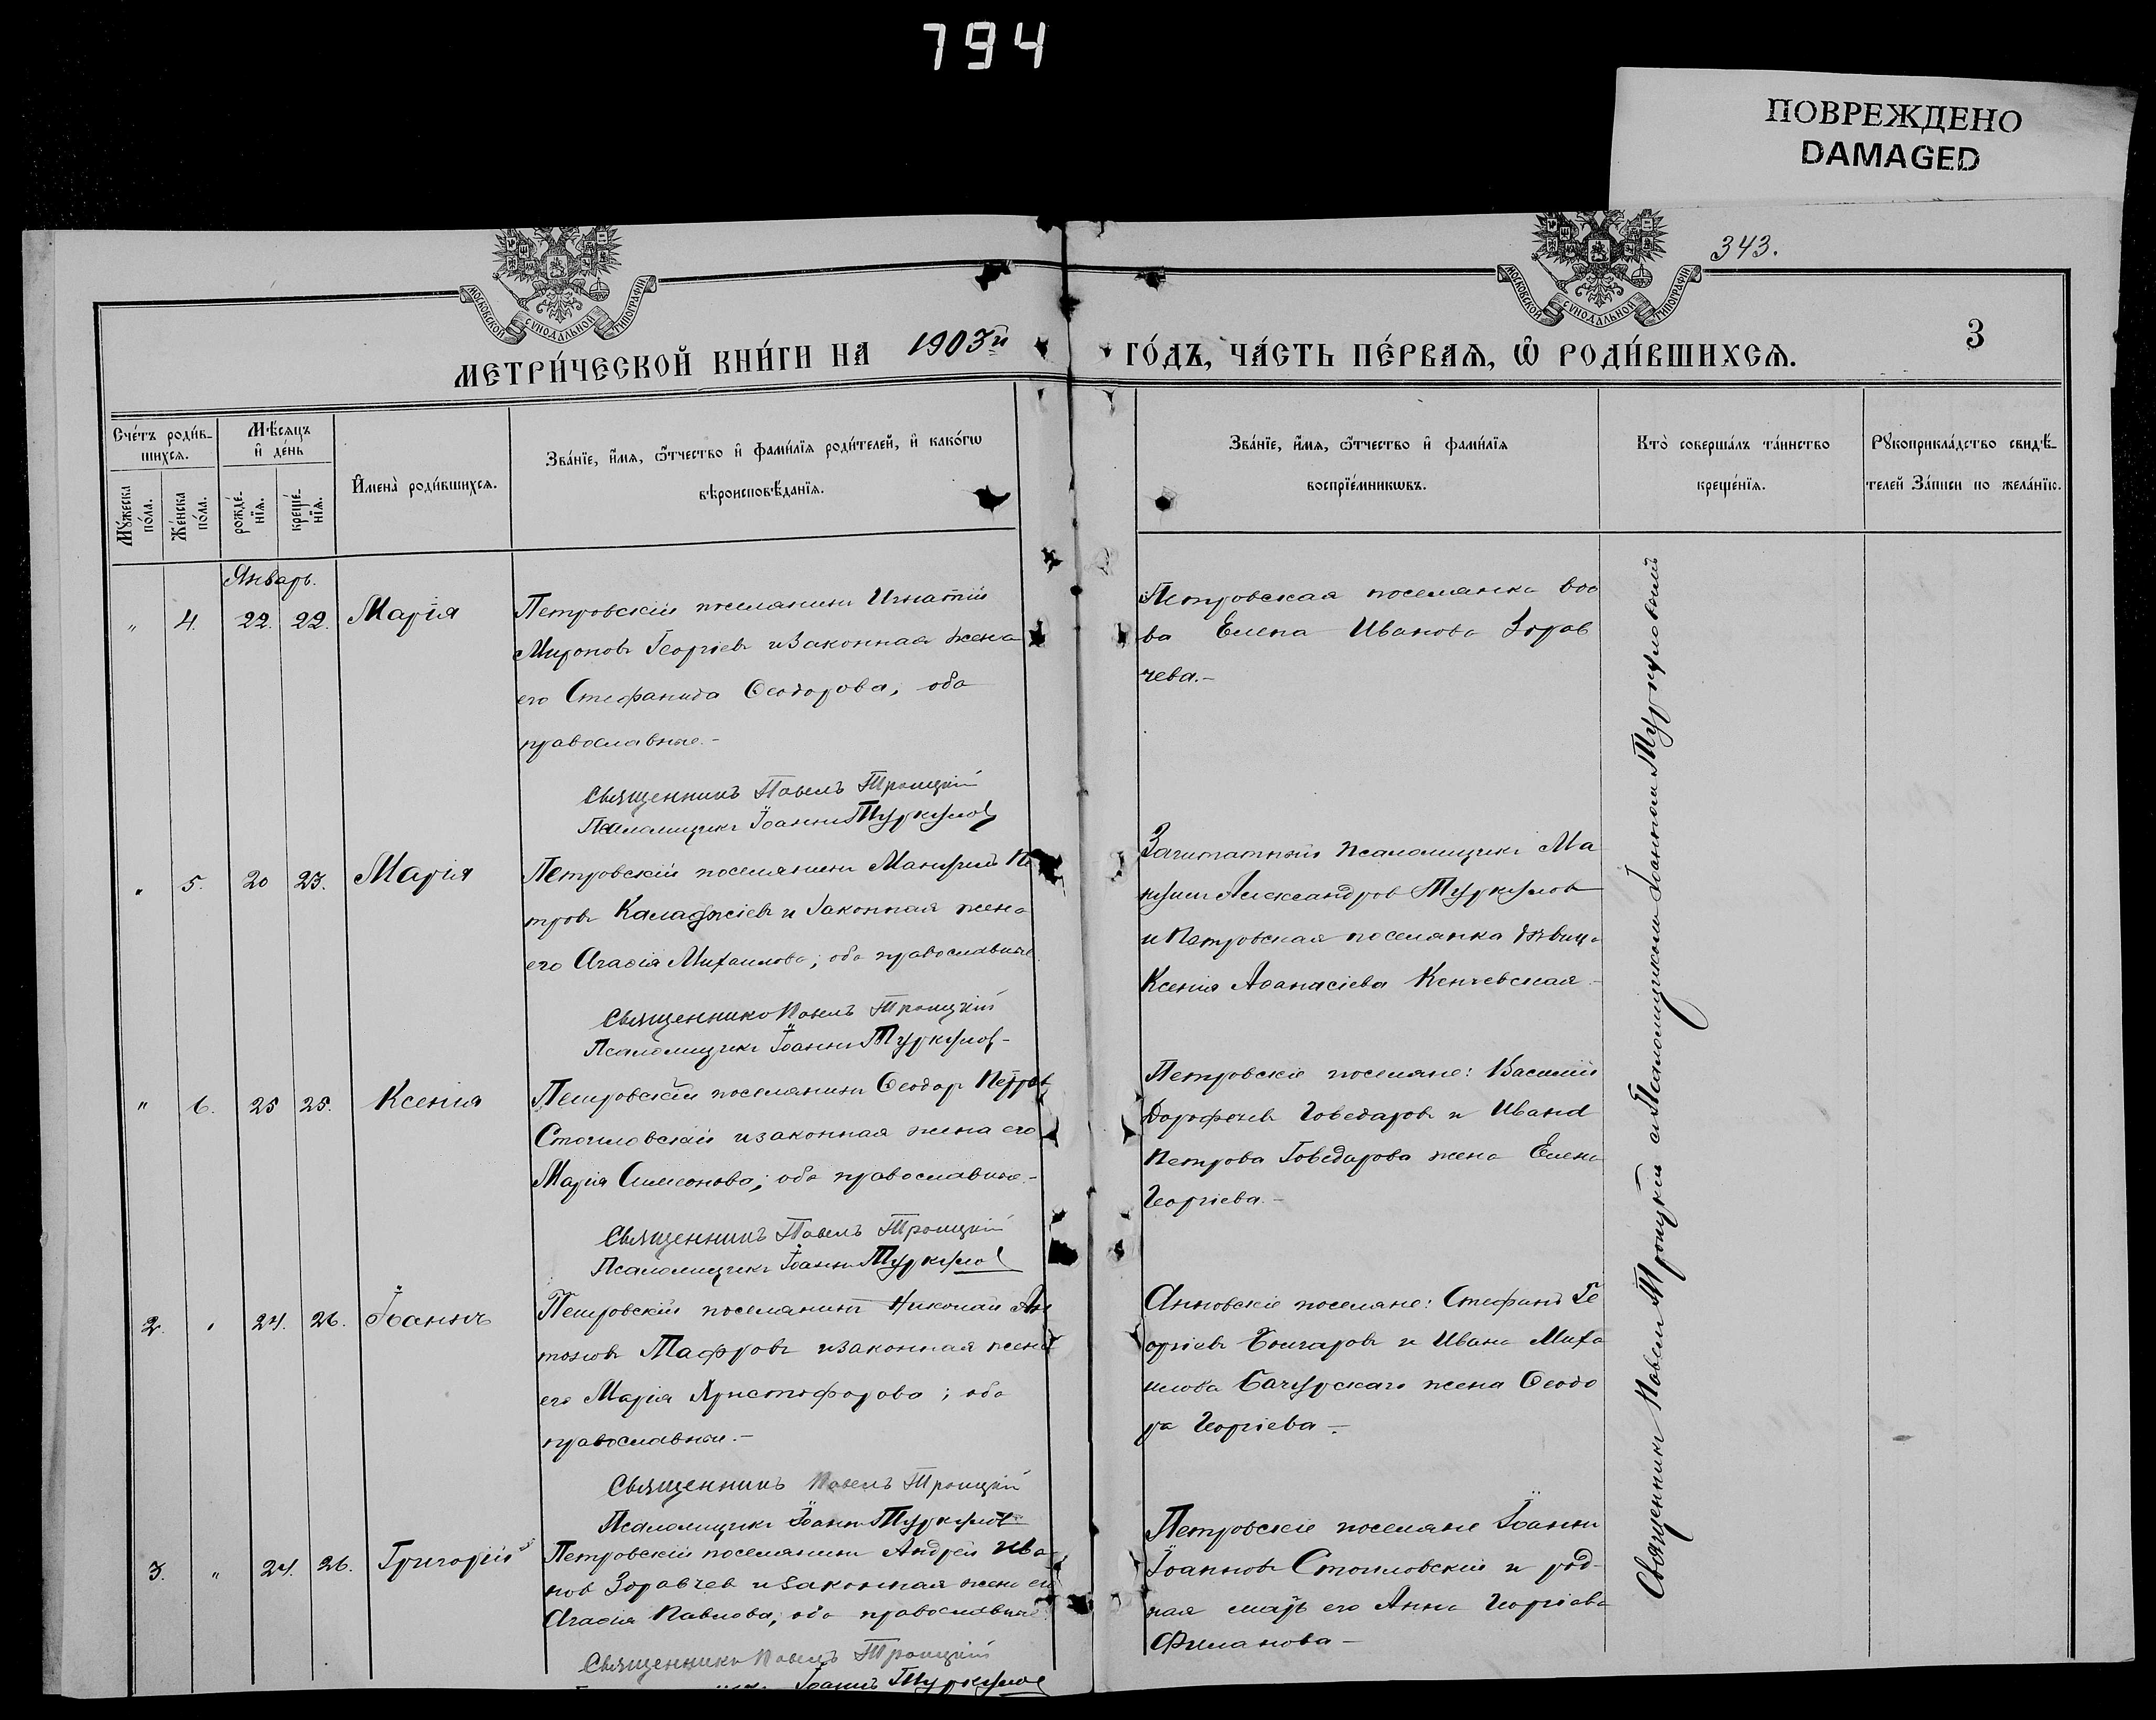 794
ПОВРЕЖДЕНО
DAMAGED
343.
МОСКОВСКОЙ СѴНОДАЛЬНОЙ ТИПОГРАФІИ
МОСКОВСКОЙ СѴНОДАЛЬНОЙ ТИПОГРАФІИ
3
МЕТРИ́ЧЕСКОЙ КНИ́ГИ НА 1903й ГО́ДЪ, ЧА́СТЬ ПЕ́РВАѦ, Ѽ РОДИ́ВШИХСѦ.
Сче́тъ роди́в-
шихсѧ.
Мꙋжеска по́ла.
Же́нска по́ла.
Мѣ́сѧцъ
и҆ де́нь
рожде́-
нїѧ.
креще́-
нїѧ.
И҆мена̀ роди́вшихсѧ.
Зва́нїе, и҆́мѧ, ѻ҆́тчество и҆ фами́лїѧ роди́телей, и҆ како́гѡ
вѣроисповѣ́данїѧ.
Зва́нїе, и҆́мѧ, ѻ҆́тчество и҆ фами́лїѧ
воспрїе́мникѡвъ.
Кто̀ соверша́лъ та́инство
креще́нїѧ.
Рꙋкоприкла́дство свидѣ́-
телей За́писи по жела́нїю.
Январь.
" 4. 22. 22. Марія
Петровскій поселянинъ Игнатій
Мироновъ Георгіевъ и законная жена
его Стефанида Ѳеодорова, оба
православные.-
Священникъ Павелъ Троицкій
Псаломщикъ Іоаннъ Туркулов
Петровская поселянка вдо
ва Елена Иванова Здрав
чева.-
" 5. 20 23. Марія
Петровскій поселянинъ Мануилъ Пе
тровъ и законная жена
его Агаѳія Михаилова; оба православные.
Священникъ Павелъ Троицкій
Псаломщикъ Іоаннъ Туркулов-
Заштатный псаломщикъ Ма
нуилъ Александров Туркулов
и Петровская поселянка дѣвица
Ксенія Аѳанасіева Кенчевская.-
" 6. 25 25. Ксенія
Петровскій поселянинъ Ѳеодор Петров
Стоиловскій и законная жена его
Марія Симеонова; оба православные.-
Священникъ Павелъ Троицкій
Псаломщикъ Іоаннъ Туркулов
Петровскіе поселяне: Василій
Дорофеевъ Говедаровъ и Ивана
Петрова Говедарова жена Елена
Георгіева.-
2. " 24. 26. Іоаннъ
Петровскій поселянинъ Николай Ан
тоновъ Тафровъ и законная жена
его Марія Христофорова; оба
православные.-
Священникъ Павелъ Троицкій
Псаломщикъ Іоаннъ Туркулов
Анновскіе поселяне: Стефанъ Ге
оргіевъ и Ивана Миха
илова Бачурскаго жена Ѳеодо
ра Георгіева.-
3. " 24. 26. Григорій
Петровскій поселянинъ Андрей Ива-
нов Здравчев и законная жена его
Агаѳія Павлова, оба православные.
Священникъ Павелъ Троицкій
Іоаннъ Туркулов
Петровскіе поселяне Іоаннъ
Іоанновъ Стоиловскій и род-
ная мать его Анна Георгіева
Филанова-
Священникъ Павелъ Троицкій съ Псаломщикомъ Іоанномъ Туркуловымъ